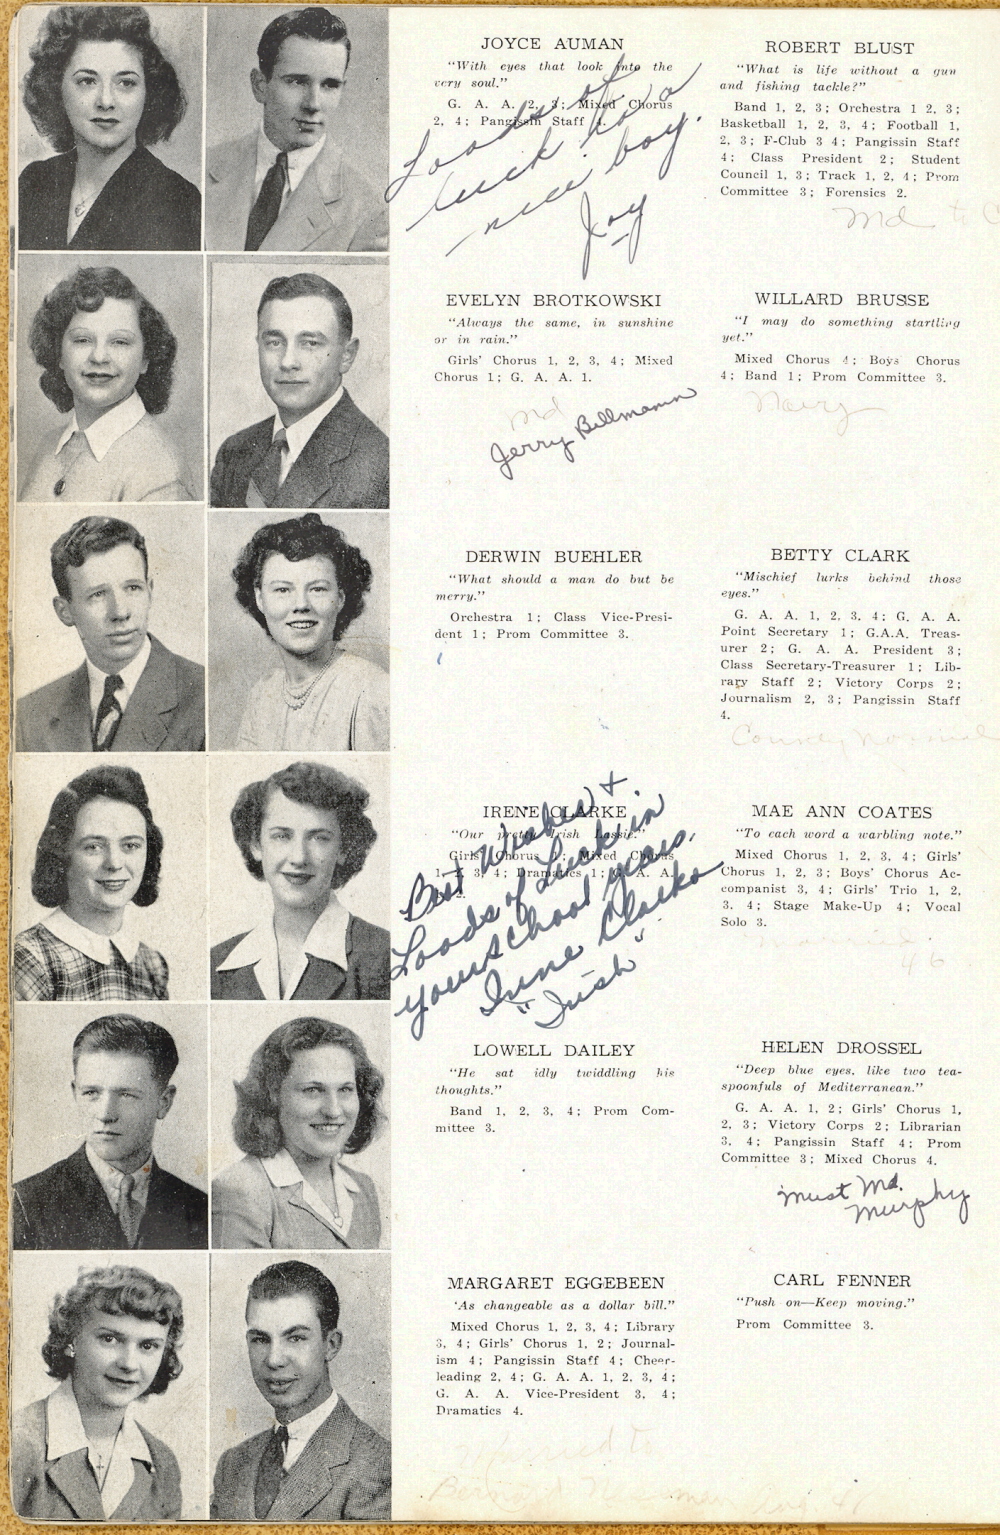 JOYCE AUMAN
"With eyes that look into the
very soul."
G. A. A. 2, 3; Mixed Chorus
2, 4; Pangissin Staff 4.
Loads of
luck to a
nice boy.
Joy
ROBERT BLUST
"What is life without a gun
and fishing tackle?"
Band 1, 2, 3; Orchestra 1 2, 3;
Basketball 1, 2, 3, 4; Football 1,
2, 3; F-Club 3 4; Pangissin Staff
4; Class President 2; Student
Council 1, 3; Track 1, 2, 4; Prom
Committee 3; Forensics 2.
Md to
EVELYN BROTKOWSKI
"Always the same, in sunshine
or in rain."
Girls' Chorus 1, 2, 3, 4; Mixed
Chorus 1; G. A. A. 1.
Md
Jerry Billmann
WILLARD BRUSSE
"I may do something startling
yet."
Mixed Chorus 4; Boys Chorus
4; Band 1; Prom Committee 3.
Navy
DERWIN BUEHLER
"What should a man do but be
merry."
Orchestra 1; Class Vice-Presi-
dent 1; Prom Committee 3.
BETTY CLARK
"Mischief lurks behind those
eyes."
G. A. A. 1, 2, 3, 4; G. A. A.
Point Secretary 1; G.A.A. Treas-
urer 2; G. A. A. President 3;
Class Secretary-Treasurer 1; Lib-
rary Staff 2; Victory Corps 2;
Journalism 2, 3; Pangissin Staff
4.
County Normal
IRENE CLARKE
"Our pretty Irish Lassie."
Girls' Chorus 1; Mixed Chorus
1, 2, 3, 4; Dramatics 1; G. A. A.
Best Wishes &
Loads of Luck in
your school years.
Irene Clarke
"Irish"
MAE ANN COATES
"To each word a warbling note."
Mixed Chorus 1, 2, 3, 4; Girls'
Chorus 1, 2, 3; Boys' Chorus Ac-
companist 3, 4; Girls' Trio 1, 2,
3, 4; Stage Make-Up 4; Vocal
Solo 3.
Married
46
LOWELL DAILEY
"He sat idly twiddling his
thoughts."
Band 1, 2, 3, 4; Prom Com-
mittee 3.
HELEN DROSSEL
"Deep blue eyes, like two tea-
spoonfuls of Mediterranean."
G. A. A. 1, 2; Girls' Chorus 1,
2, 3; Victory Corps 2; Librarian
3, 4; Pangissin Staff 4; Prom
Committee 3; Mixed Chorus 4.
Must Md.
Murphy
MARGARET EGGEBEEN
'As changeable as a dollar bill."
Mixed Chorus 1, 2, 3, 4; Library
3, 4; Girls' Chorus 1, 2; Journal-
ism 4; Pangissin Staff 4; Cheer-
leading 2, 4; G. A. A. 1, 2, 3, 4;
G. A. A. Vice-President 3, 4;
Dramatics 4.
Married to
Bernard
CARL FENNER
"Push on—Keep moving."
Prom Committee 3.